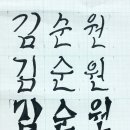 김순원
김순원
김순원